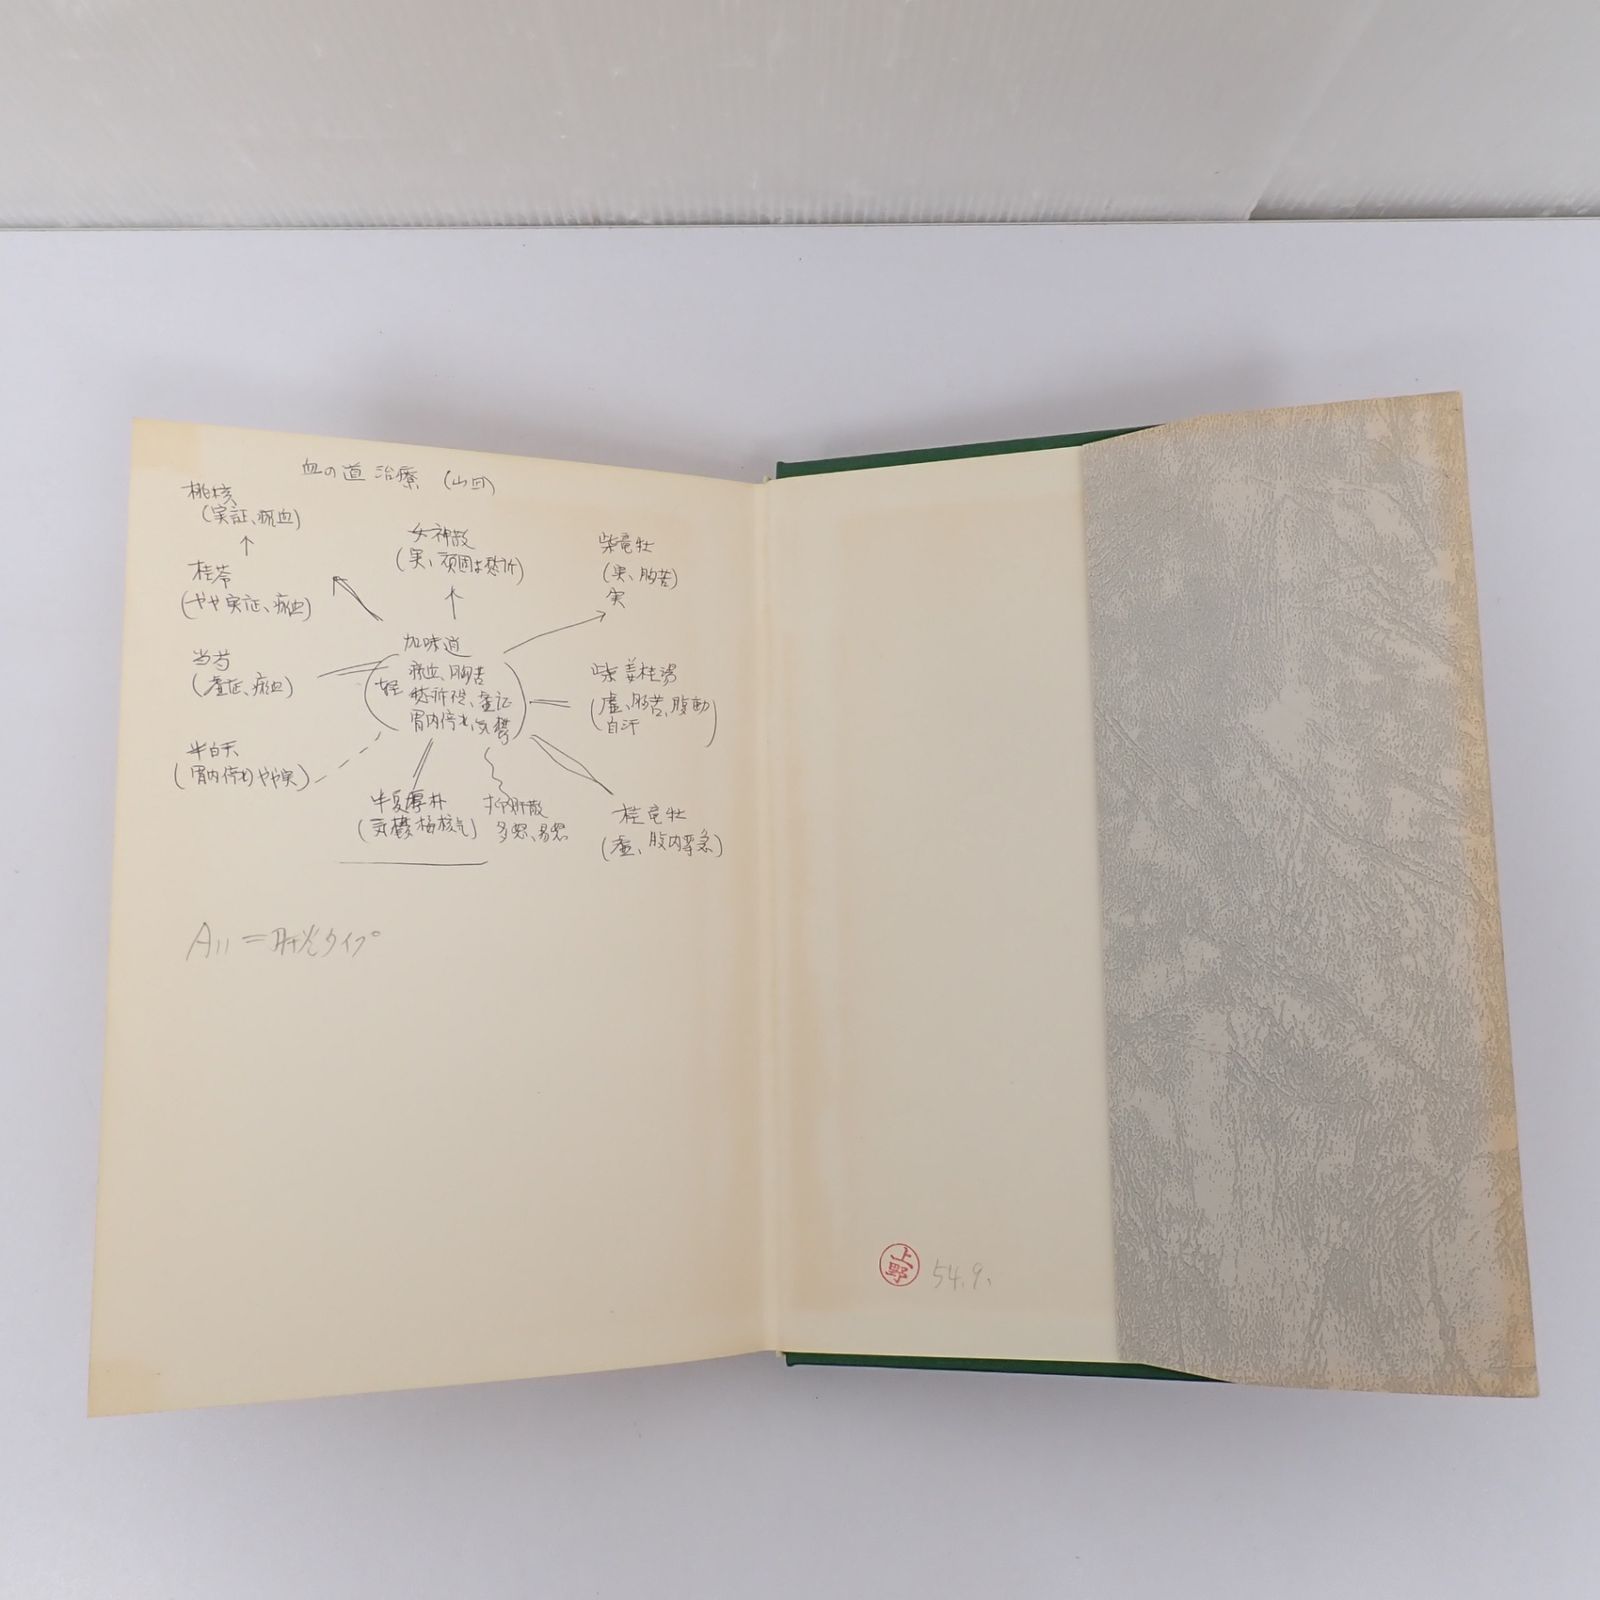 血の道 治療 (山田)
桃核
(実証、瘀血)
↑
桂苓
(やや実証、瘀血)
当芍
(虚証、瘀血)
半白天
(胃内停水 やや実)
女神散
(実、頑固な愁訴)
加味逍
瘀血、胸苦
愁訴 虚証
胃内停水、気鬱
半夏厚朴
(気鬱 梅核気)
抑肝散
多怒、易怒
柴竜牡
(実、胸苦)
実
柴姜桂湯
(虚、胸苦、腹動
自汗)
桂竜牡
(虚、腹内拘急)
A11=肝炎タイプ
上野
54.9.